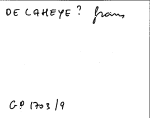 DE LAHEYE? frans
GP 1703/9